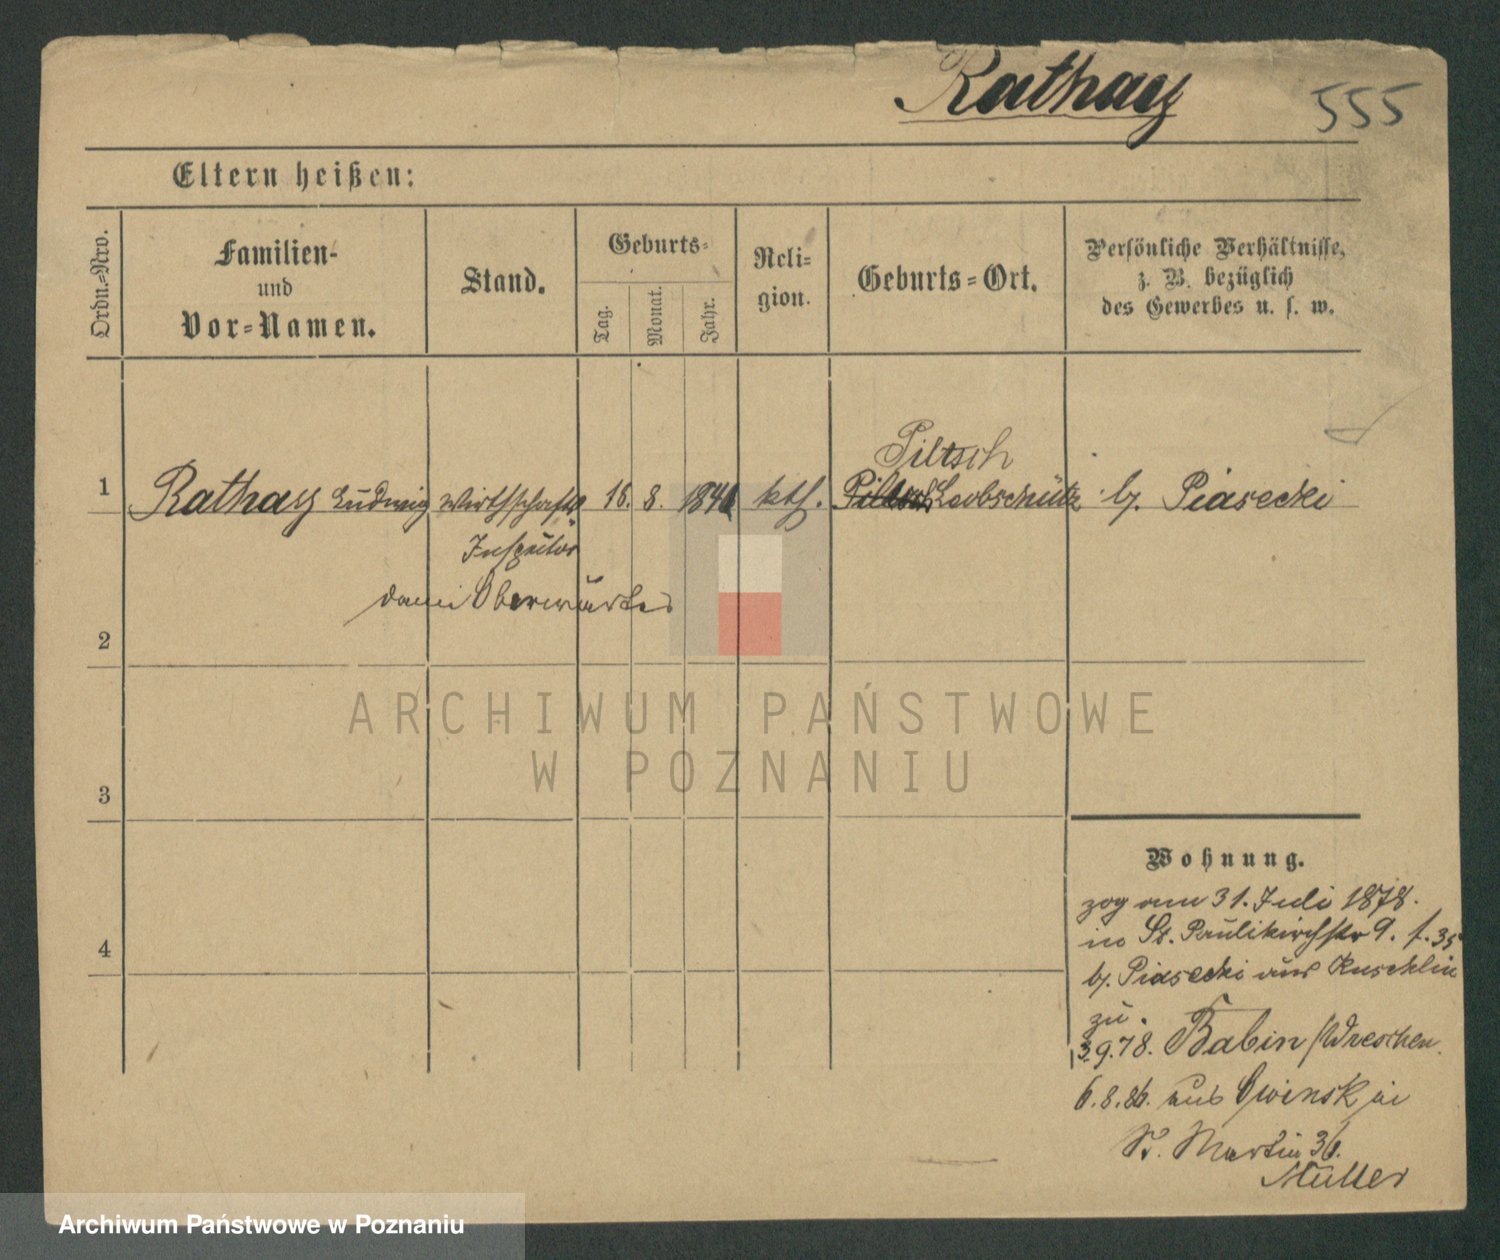 Rathay 555
Eltern heißen:
Ordn.-Nro.
Familien-
und
Vor-Namen.
Stand.
Geburts-
Tag.
Monat.
Jahr.
Reli-
gion.
Geburts-Ort.
Persönliche Verhältnisse,
z. B. bezüglich
des Gewerbes u. s. w.
Piltsch
1 Rathay Ludwig Wirthschafts 16. 8. 1846 kth. Piltsch Leobschütz b. Piasecki
Inspector
dann Oberwärter
2
3
4
Wohnung.
zog am 31. Juli 1878.
in St. Paulikirchstr 9. f. 35
b. Piasecki aus Kuschlin
zu.
3.9.78. Babin / Wreschen.
6.8.86. aus Owinsk in
St. Martin 36.
Müller
ARCHIWUM PAŃSTWOWE
W POZNANIU
Archiwum Państwowe w Poznaniu